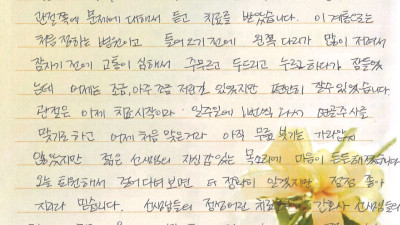 관절쪽에 문제에 대해서 듣고 치료를 받았습니다. 이 계통으로는
처음 접하는 병원이고 들어오기 전에 왼쪽 다리가 많이 저려서
잠자기 전에 고통이 심해서 주무르고 두드리고 누르고 하다가 잠들었
는데 어제는 조금, 아주 조금 저린감 있었지만 편안히 잘수 있었습니다
관절은 이제 치료 시작이라 일주일에 1번씩 다섯 연골주사를
맞기로 하고 어제 처음 맞은거라 아직 무릎 붓기는 가라앉지
않았지만 젊은 선생님의 자신감있는 목소리에 마음이 든든해졌습니다
오늘 퇴원해서 걸어 다녀 보면 더 잘 알겠지만 점점 좋아
지리라 믿습니다. 선생님들의 간호사 선생님들의